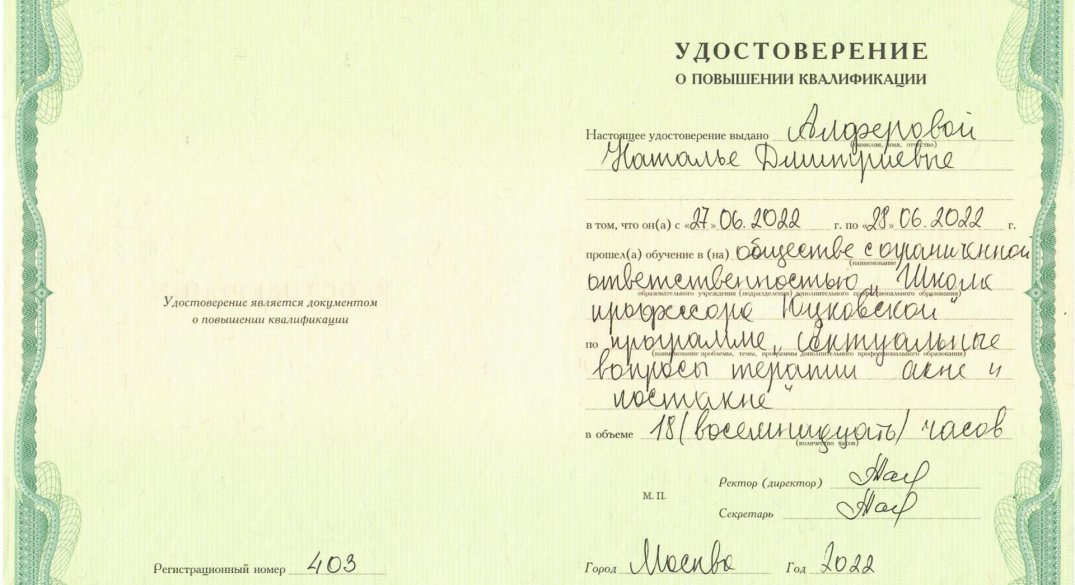 Удостоверение является документом
о повышении квалификации
Регистрационный номер 403
УДОСТОВЕРЕНИЕ
О ПОВЫШЕНИИ КВАЛИФИКАЦИИ
Настоящее удостоверение выдано Алферовой
(фамилия, имя, отчество)
Наталье Дмитриевне
в том, что он(а) с «27» 06. 2022 г. по «28» 06. 2022 г.
прошел(а) обучение в (на) обществе с ограниченной
(наименование
ответственностью „Школа
образовательного учреждения (подразделения) дополнительного профессионального образования)
профессора Юцковской"
по программе „Актуальные
(наименование проблемы, темы, программы дополнительного профессионального образования)
вопросы терапии акне и
постакне"
в объеме 18 (восемнадцать) часов
(количество часов)
Ректор (директор)
М. П.
Секретарь
Город Москва Год 2022